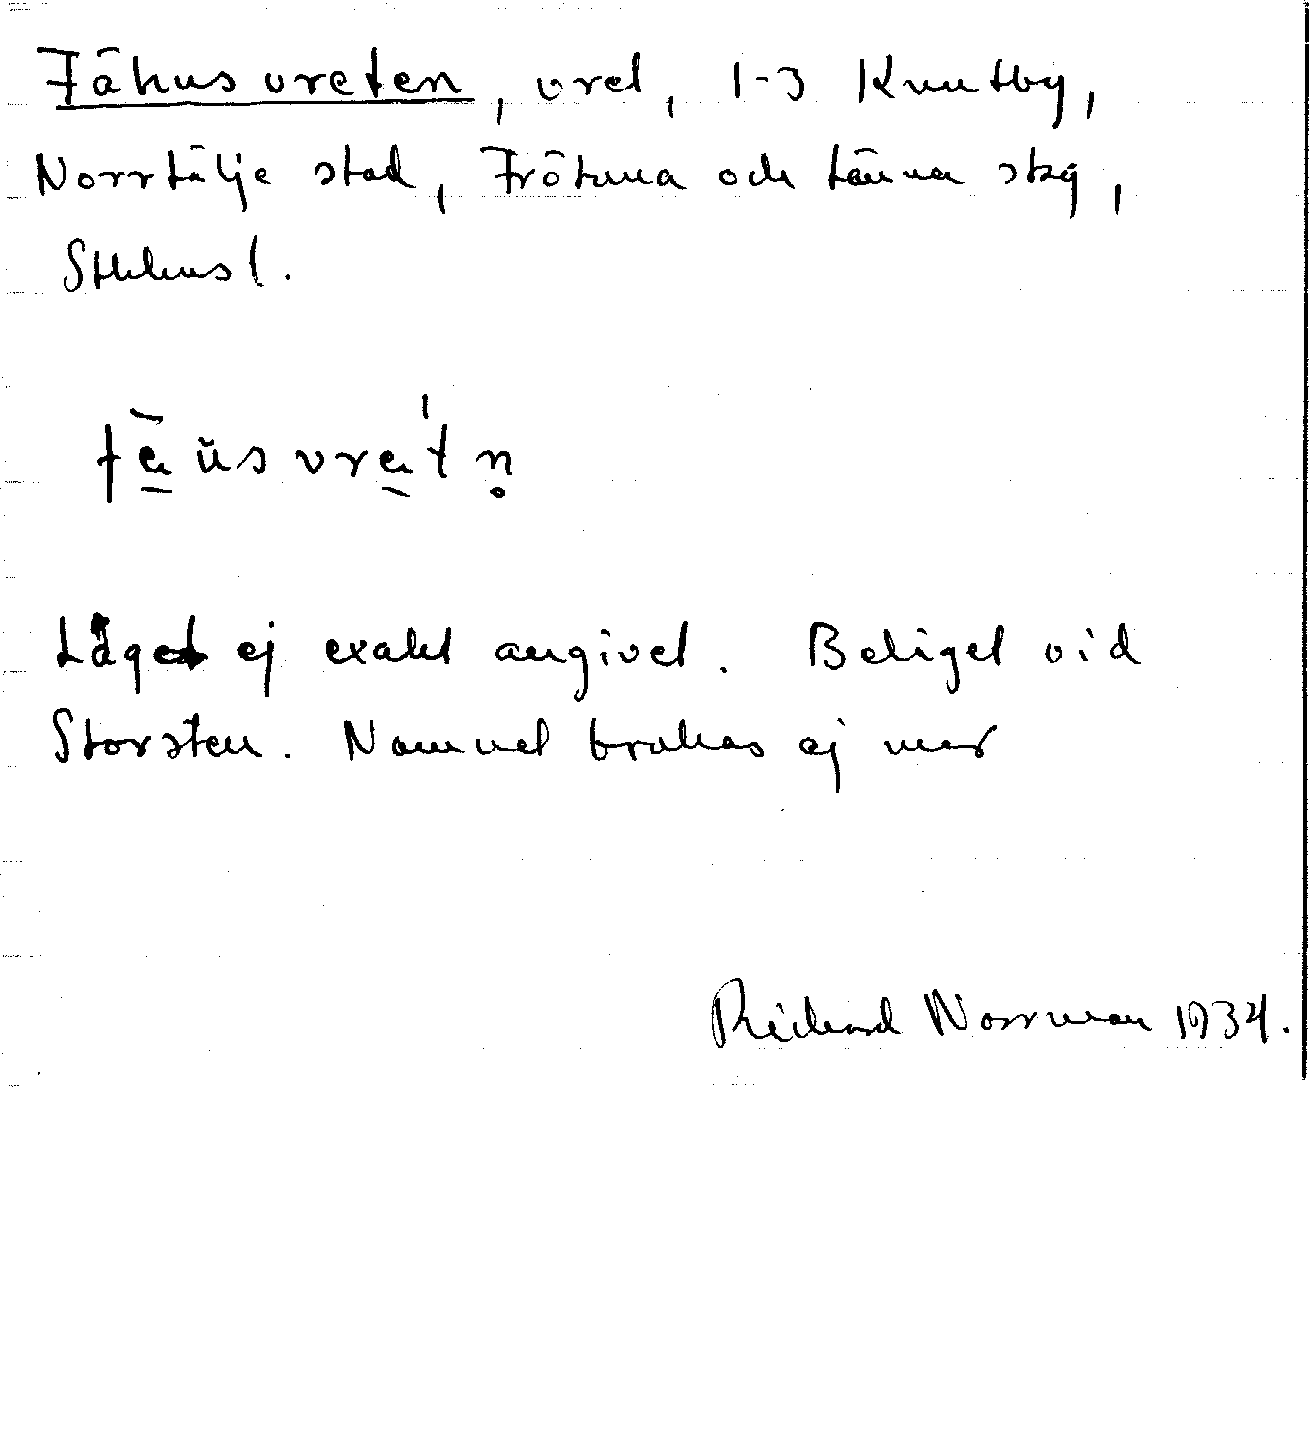 Fähusvreten, vret, 1-3 Knutby,
Norrtälje stad, Frötuna och Länna skg,
Sthlms l.
Läget ej exakt angivet. Beläget vid
Storsten. Namnet brukas ej mer
Rickard Norrman 1934.